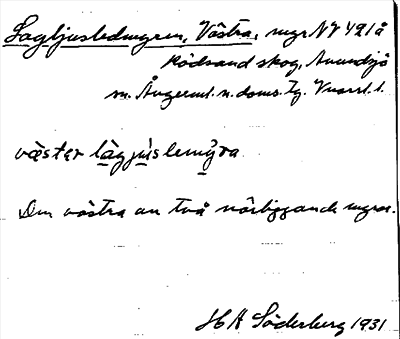 Lagljusledmyren, Västra, myr NV 491å
Rödsand skog, Anundsjö
sn. Ångerml. n. doms. Tg. Vnorrl. l.
väster lägjuslemýra
Den västra av två närliggande myrar.
H A Söderberg 1931